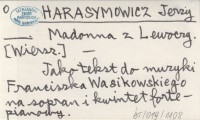 HARASYMOWICZ Jerzy
— Madonna z Lewocrg.
[Wiersz.] —
Jako tekst do muzyki
Franciszka Wasikowskiego
na sopran i kwintet forte-
pianowy.